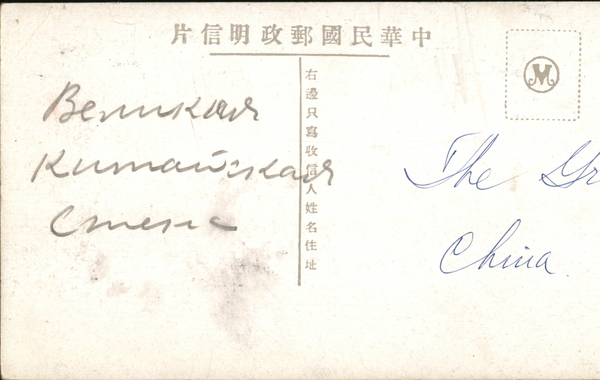 中華民國郵政明信片
M
Великая
Китайская
Стена
右邊只寫收信人姓名住址
The Gr
China